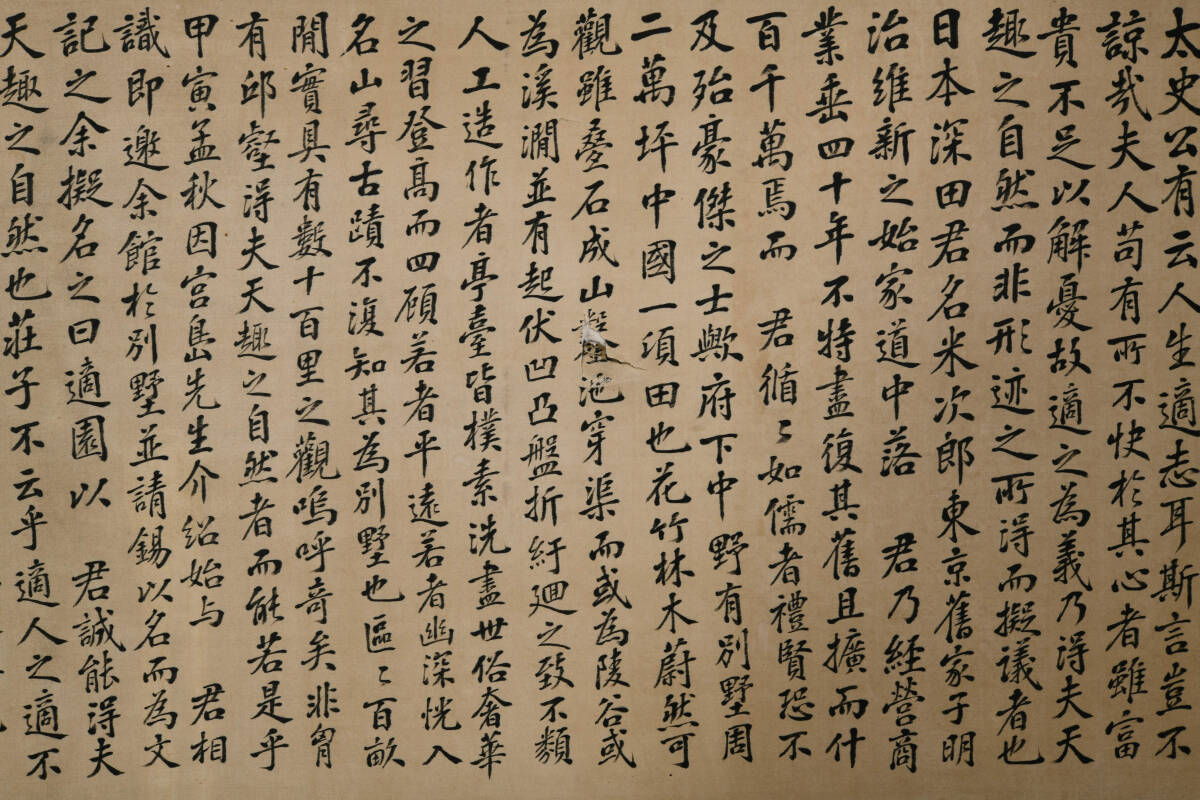 太史公有云人生適志耳斯言豈不
諒哉夫人苟有所不快於其心者雖富
貴不足以解憂故適之為義乃得夫天
趣之自然而非形迹之所得而擬議者也
日本深田君名米次郎東京舊家子明
治維新之始家道中落 君乃經營商
業垂四十年不特盡復其舊且擴而什
百千萬焉而 君循〻如儒者禮賢恐不
及殆豪傑之士歟府下中野有別墅周
二萬坪中國一頃田也花竹林木蔚然可
觀雖疊石成山 池穿渠而或為陵谷或
為溪澗並有起伏凹凸盤折紆迴之致不類
人工造作者亭臺皆樸素洗盡世俗奢華
之習登高而四顧若者平遠若者幽深恍入
名山尋古蹟不復知其為別墅也區〻百畝
閒實具有數十百里之觀嗚呼奇矣非胷
有邱壑得夫天趣之自然者而能若是乎
甲寅孟秋因宮島先生介紹始与 君相
識即邀余館於別墅並請錫以名而為文
記之余擬名之曰適園以 君誠能得夫
天趣之自然也莊子不云乎適人之適不